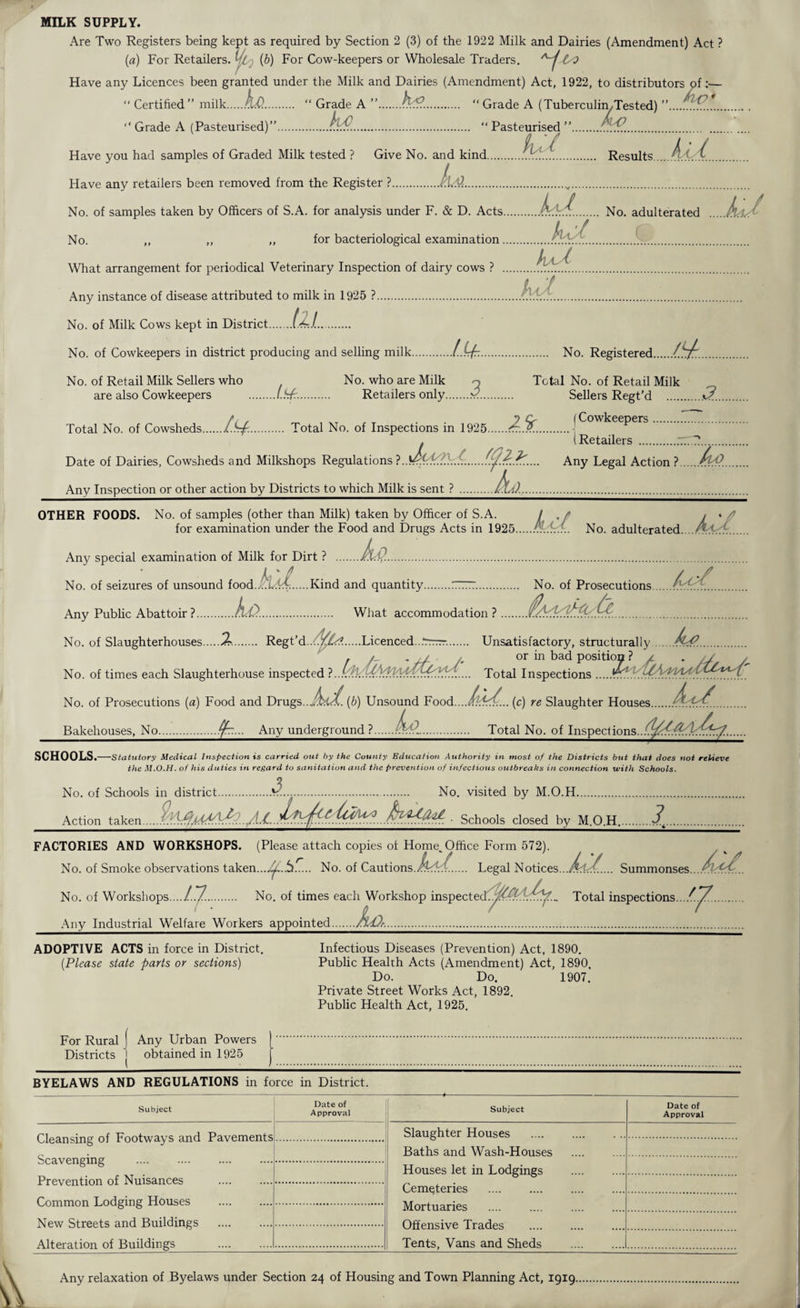 MILK SUPPLY.
Are Two Registers being kept as required by Section 2 (3) of the 1922 Milk and Dairies (Amendment) Act ?
(a) For Retailers. Yes (b) For Cow-keepers or Wholesale Traders. Yes
Have any Licences been granted under the Milk and Dairies (Amendment) Act, 1922, to distributors of :—
"Certified" milk.....No.......... "Grade A "......No.......... "Grade A (Tuberculin Tested) "......No..........
"Grade A (Pasteurised)"..........No.......... "Pasteurised "..........No..........
Have you had samples of Graded Milk tested ? Give No. and kind..........Nil.......... Results.....Nil..........
Have any retailers been removed from the Register ?..........No..........
No. of samples taken by Officers of S.A. for analysis under F. & D. Acts..........Nil.......... No. adulterated .....Nil
No. ,, ,, ,, for bacteriological examination..........Nil..........
What arrangement for periodical Veterinary Inspection of dairy cows ? ..........Nil..........
Any instance of disease attributed to milk in 1925 ?..........Nil..........
No. of Milk Cows kept in District.......121..........
No. of Cowkeepers in district producing and selling milk..........14.......... No. Registered......14..........
No. of Retail Milk Sellers who No. who are Milk Total No. of Retail Milk
are also Cowkeepers ........14.......... Retailers only......3.......... Sellers Regt'd ..........3..........
Total No. of Cowsheds......14.......... Total No. of Inspections in 1925.....28.......... Cowkeepers ..........
Retailers ..........
Date of Dairies, Cowsheds and Milkshops Regulations ?.. 1922.......... Any Legal Action ?.....No..........
Any Inspection or other action by Districts to which Milk is sent ? ..........No..........
OTHER FOODS. No. of samples (other than Milk) taken by Officer of S.A.
for examination under the Food and Drugs Acts in 1925.....Nil.... No. adulterated....Nil.....
Any special examination of Milk for Dirt ? .......No..........
No. of seizures of unsound food..Nil.....Kind and quantity.......—.......... No. of Prosecutions.....Nil..........
Any Public Abattoir ?..........No.......... What accommodation ? .......Private..........
No. of Slaughterhouses.....2....... Regt'd...Yes.....Licenced..—....... Unsatisfactory, structurally .....No..........
or in bad position ?
No. of times each Slaughterhouse inspected ?..Intermittently.... Total Inspections .....Intermittently
No. of Prosecutions (a) Food and Drugs..Nil. (b) Unsound Food....Nil.... (c) re Slaughter Houses......Nil..........
Bakehouses, No..........4... Any underground ?......No.......... Total No. of Inspections..Yearly.....
SCHOOLS.—Statutory Medical Inspection is carried out by the County Education Authority in most of the Districts but that does not relieve
the M.O.H. of his duties in regard to sanitation and the prevention of infectious outbreaks in connection with Schools.
No. of Schools in district..........3.......... No. visited by M.O.H..........
Action taken.....Inquiries re Infectious Disease . Schools closed by M.O.H.......3..........
FACTORIES AND WORKSHOPS. (Please attach copies of Home Office Form 572).
No. of Smoke observations taken...45.... No. of Cautions..Nil..... Legal Notices...Nil.... Summonses...Nil..
No. of Workshops....17.......... No. of times each Workshop inspected..Yearly.. Total inspections....17..........
Any Industrial Welfare Workers appointed.......No..........
ADOPTIVE ACTS in force in District.
(Please state parts or sections)
Infectious Diseases (Prevention) Act, 1890.
Public Health Acts (Amendment) Act, 1890.
Do. Do. 1907.
Private Street Works Act, 1892.
Public Health Act, 1925.
For Rural Any Urban Powers
Districts obtained in 1925
BYELAWS AND REGULATIONS in force in District.
Subject Date of Approval Subject Date of Approval
Cleansing of Footways and Pavements
Scavenging
Prevention of Nuisances
Common Lodging Houses
New Streets and Buildings
Alteration of Buildings
Slaughter Houses
Baths and Wash-Houses
Houses let in Lodgings
Cemeteries
Mortuaries
Offensive Trades
Tents, Vans and Sheds
Any relaxation of Byelaws under Section 24 of Housing and Town Planning Act, 1919..........